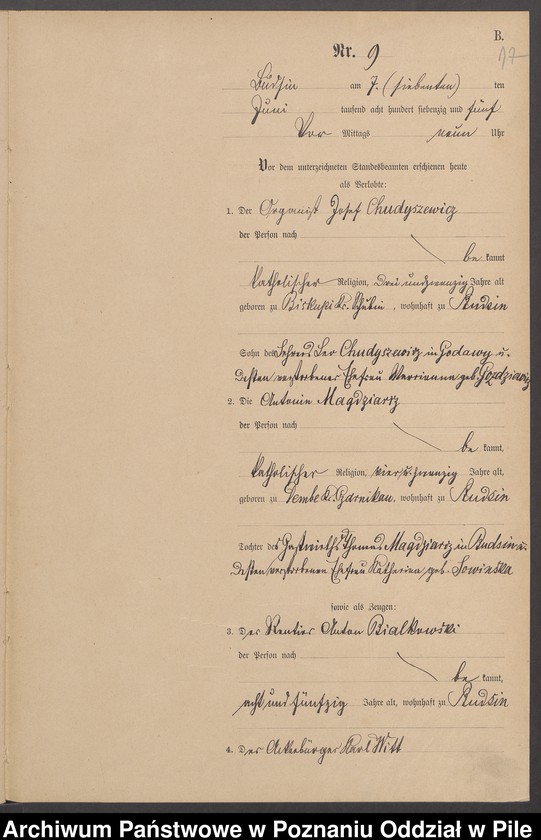 B.
17
Nr. 9
Budsin am 7. (siebenten) ten
Juni tausend acht hundert siebenzig und fünf
Vor Mittags neun Uhr
Vor dem unterzeichneten Standesbeamten erschienen heute
als Verlobte:
1. Der Organist Josef Chudyszewicz
der Person nach
be kannt
katholischer Religion, drei und zwanzig Jahre alt
geboren zu Biskupi Kr. Schubin, wohnhaft zu Budsin
Sohn des Lehrers Leo Chudyszewicz in Godawy u.
dessen verstorbener Ehefrau Marianna geb. Gozdziewicz
2. Die Antonie Magdziarz
der Person nach
be kannt,
katholischer Religion, vier u. zwanzig Jahre alt,
geboren zu Dembe Kr. Czarnikau, wohnhaft zu Budsin
Tochter des Gastwirths Thomas Magdziarz in Budsin u.
dessen verstorbenen Ehefrau Katharina geb. Sowinska
sowie als Zeugen:
3. Der Rentier Anton Bialkowski
der Person nach
be kannt,
acht und fünfzig Jahre alt, wohnhaft zu Budsin
4. Der Ackerbürger Karl Witt
Archiwum Państwowe w Poznaniu Oddział w Pile